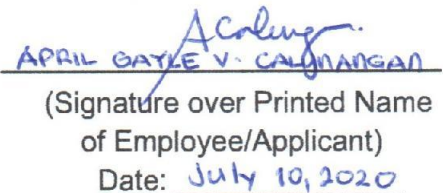 APRIL GAYLE V. CALUNANGAN
(Signature over Printed Name
of Employee/Applicant)
Date: July 10, 2020